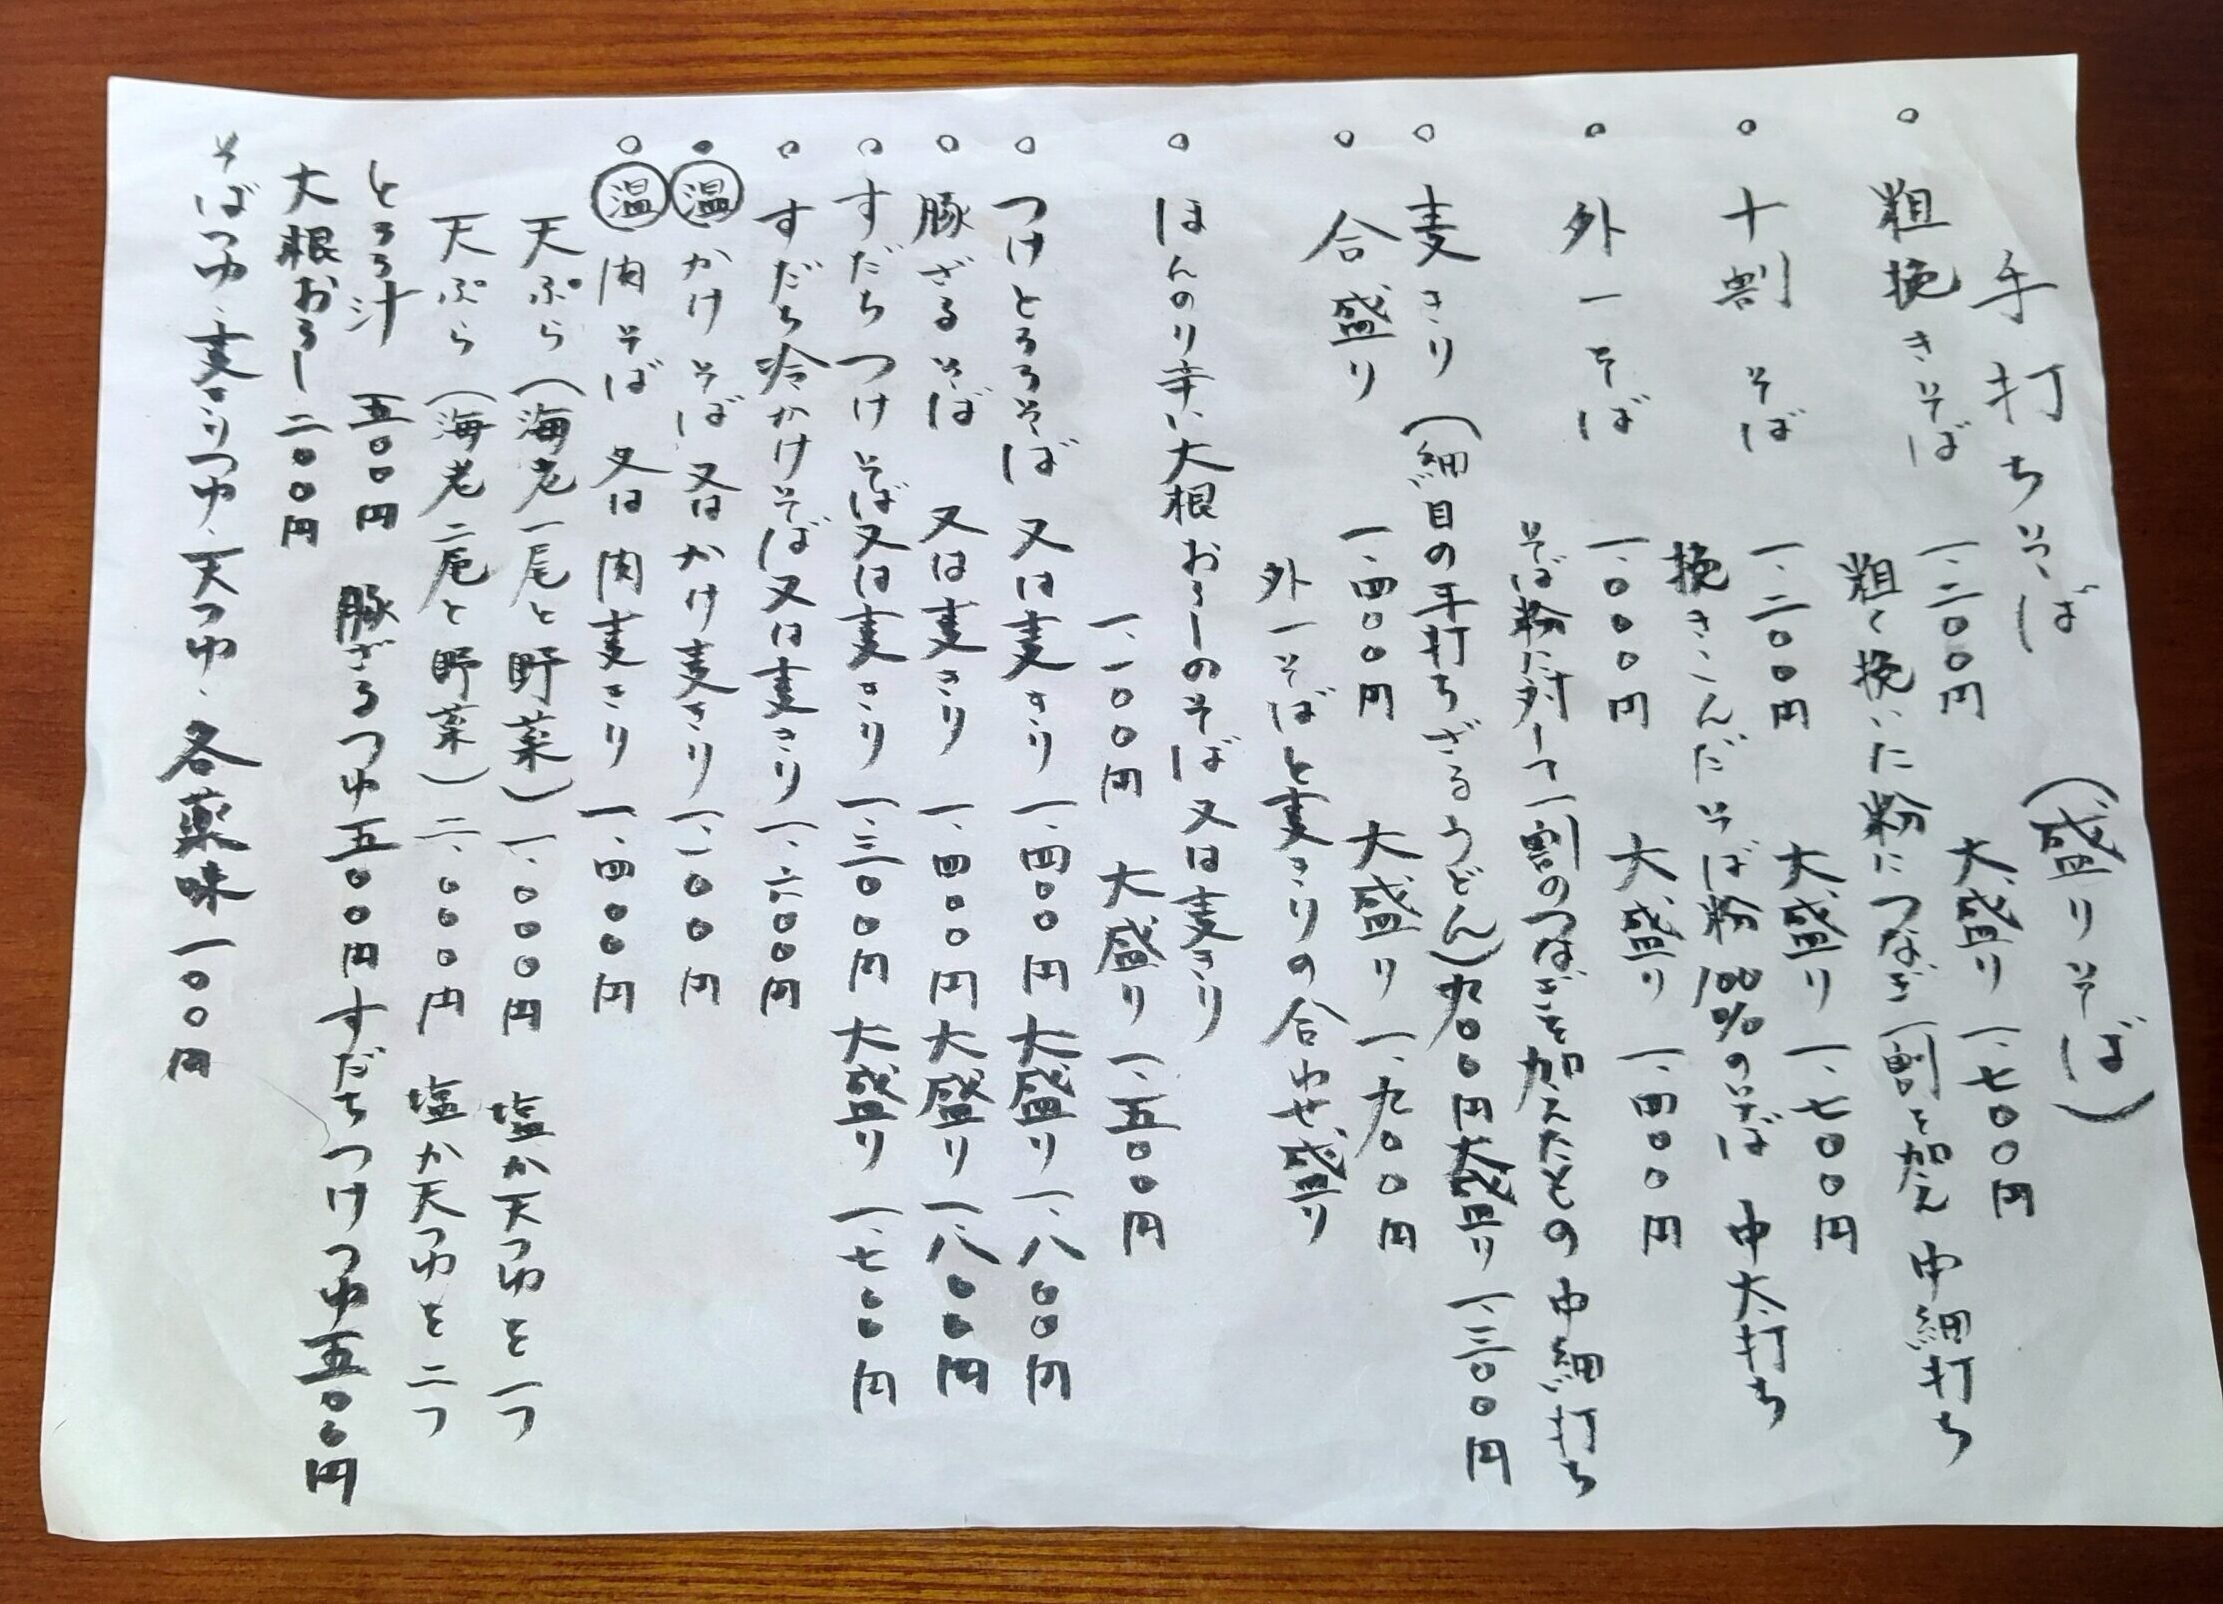 手打ちそば （盛りそば）
○ 粗挽きそば 一、二〇〇円 大盛り 一、七〇〇円
粗く挽いた粉につなぎ一割を加え 中細打ち
○ 十割そば 一、二〇〇円 大盛り 一、七〇〇円
挽きこんだそば粉100%のそば 中太打ち
○ 外一そば 一、〇〇〇円 大盛り 一、四〇〇円
そば粉に対して一割のつなぎを加えたもの 中細打ち
○ 麦きり （細目の手打ちざるうどん） 九〇〇円 大盛り 一、三〇〇円
○ 合盛り 一、四〇〇円 大盛り 一、九〇〇円
外一そばと麦きりの合わせ盛り
○ ほんのり辛い大根おろしのそば又は麦きり
一、一〇〇円 大盛り 一、五〇〇円
○ つけとろろそば 又は麦きり 一、四〇〇円 大盛り 一、八〇〇円
○ 豚ざるそば 又は麦きり 一、四〇〇円 大盛り 一、八〇〇円
○ すだちつけそば又は麦きり 一、三〇〇円 大盛り 一、七〇〇円
○ すだち冷かけそば又は麦きり 一、六〇〇円
○ ㊤温 かけそば 又はかけ麦きり 一、一〇〇円
○ 温 肉そば 又は肉麦きり 一、四〇〇円
天ぷら（海老一尾と野菜） 一、〇〇〇円 塩か天つゆを一つ
天ぷら（海老二尾と野菜） 二、〇〇〇円 塩か天つゆを二つ
とろろ汁 五〇〇円 豚ざるつゆ 五〇〇円 すだちつけつゆ 五〇〇円
大根おろし 二〇〇円
そばつゆ、麦きりつゆ、天つゆ、各薬味 一〇〇円